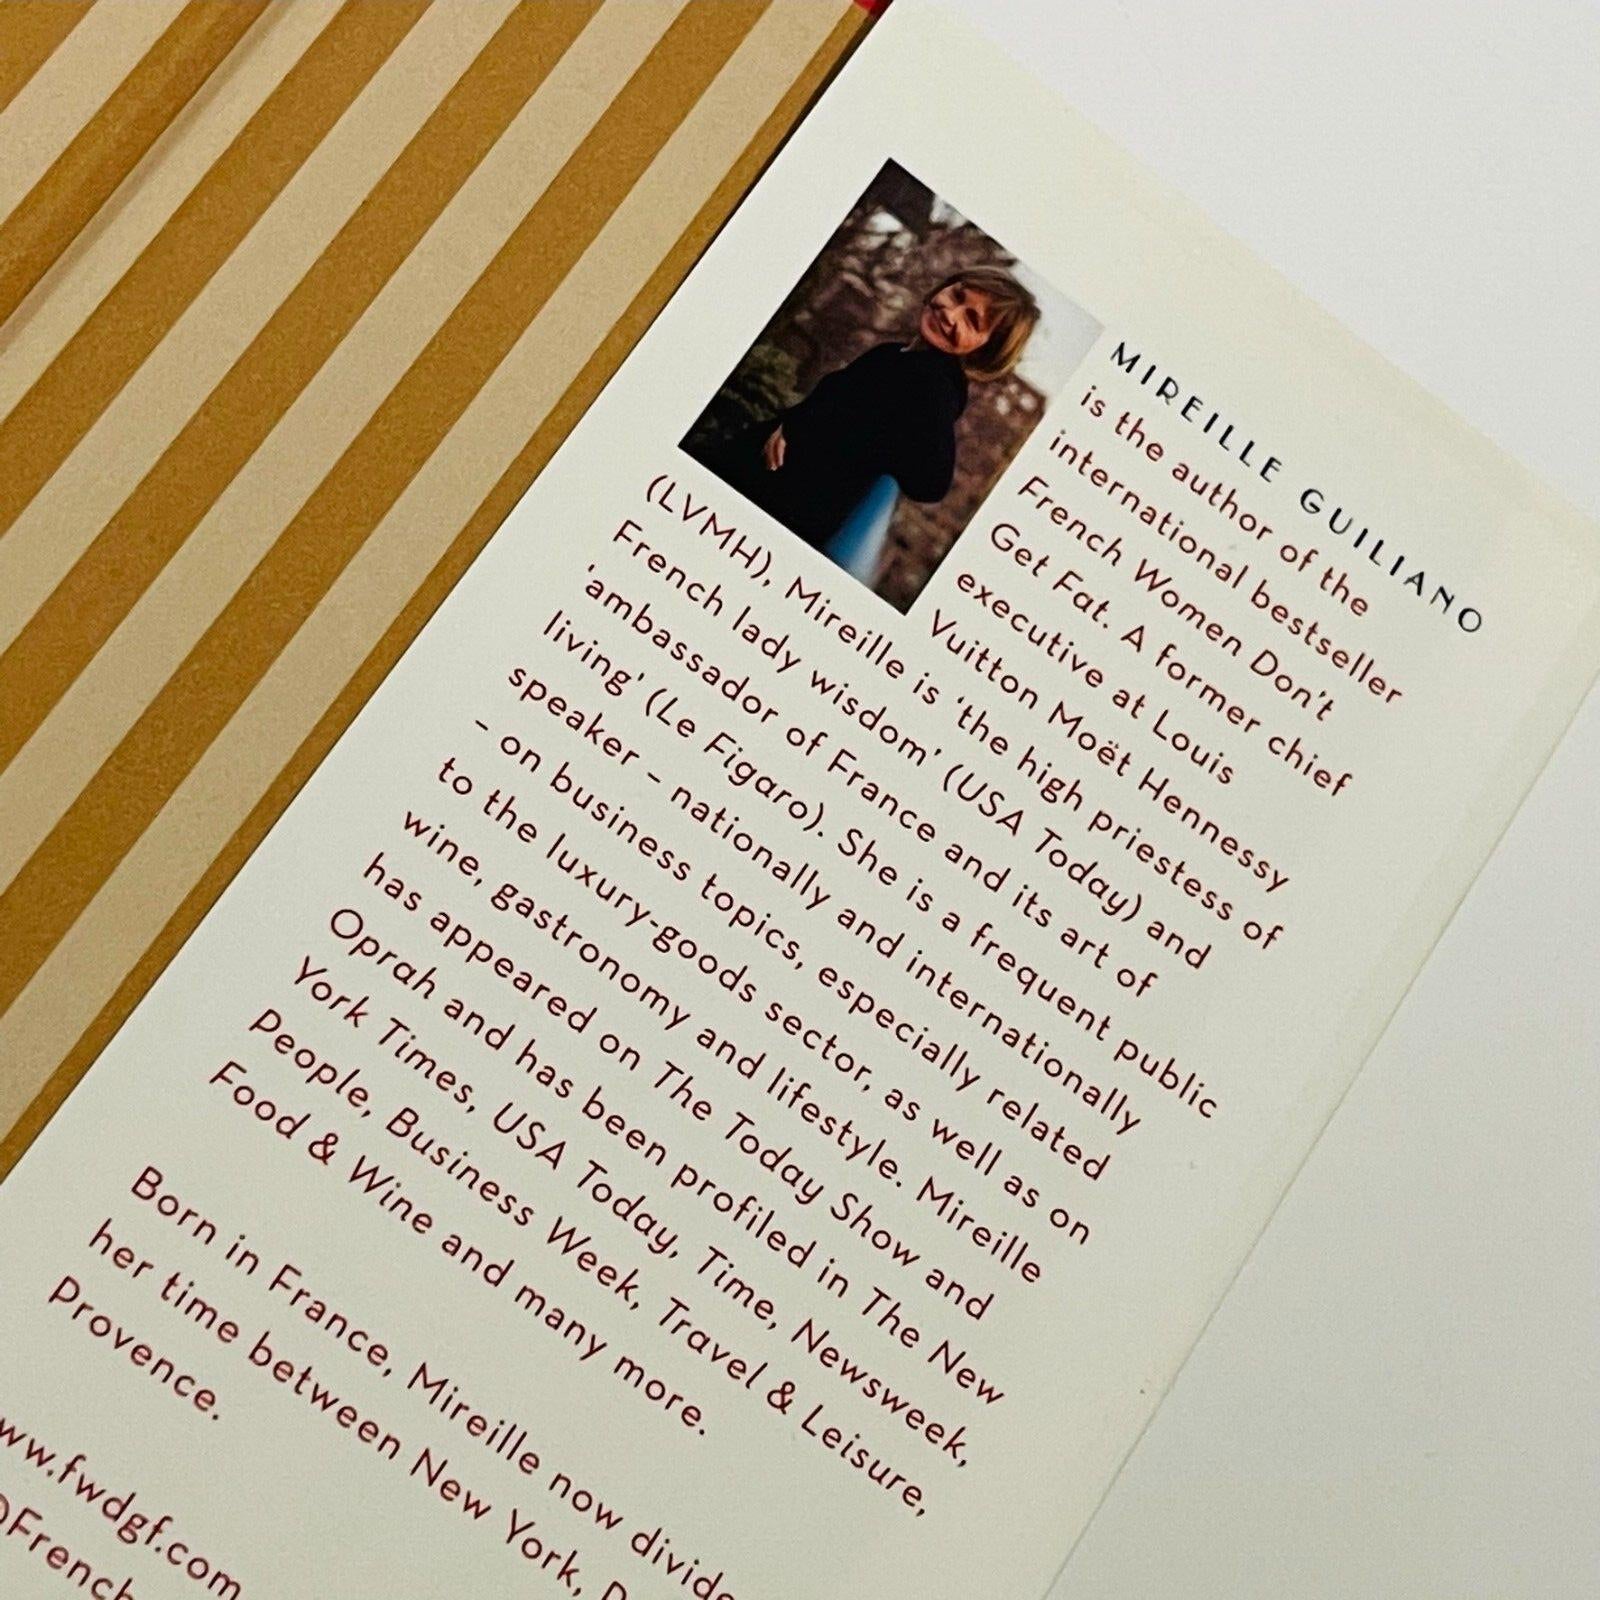 MIREILLE GUILIANO
is the author of the
international bestseller
French Women Don't
Get Fat. A former chief
executive at Louis
Vuitton Moët Hennessy
(LVMH), Mireille is 'the high priestess of
French lady wisdom' (USA Today) and
'ambassador of France and its art of
living' (Le Figaro). She is a frequent public
speaker – nationally and internationally
– on business topics, especially related
to the luxury-goods sector, as well as on
wine, gastronomy and lifestyle. Mireille
has appeared on The Today Show and
Oprah and has been profiled in The New
York Times, USA Today, Time, Newsweek,
People, Business Week, Travel & Leisure,
Food & Wine and many more.
Born in France, Mireille now divide
her time between New York,
Provence.
ww.fwdgf.com
French